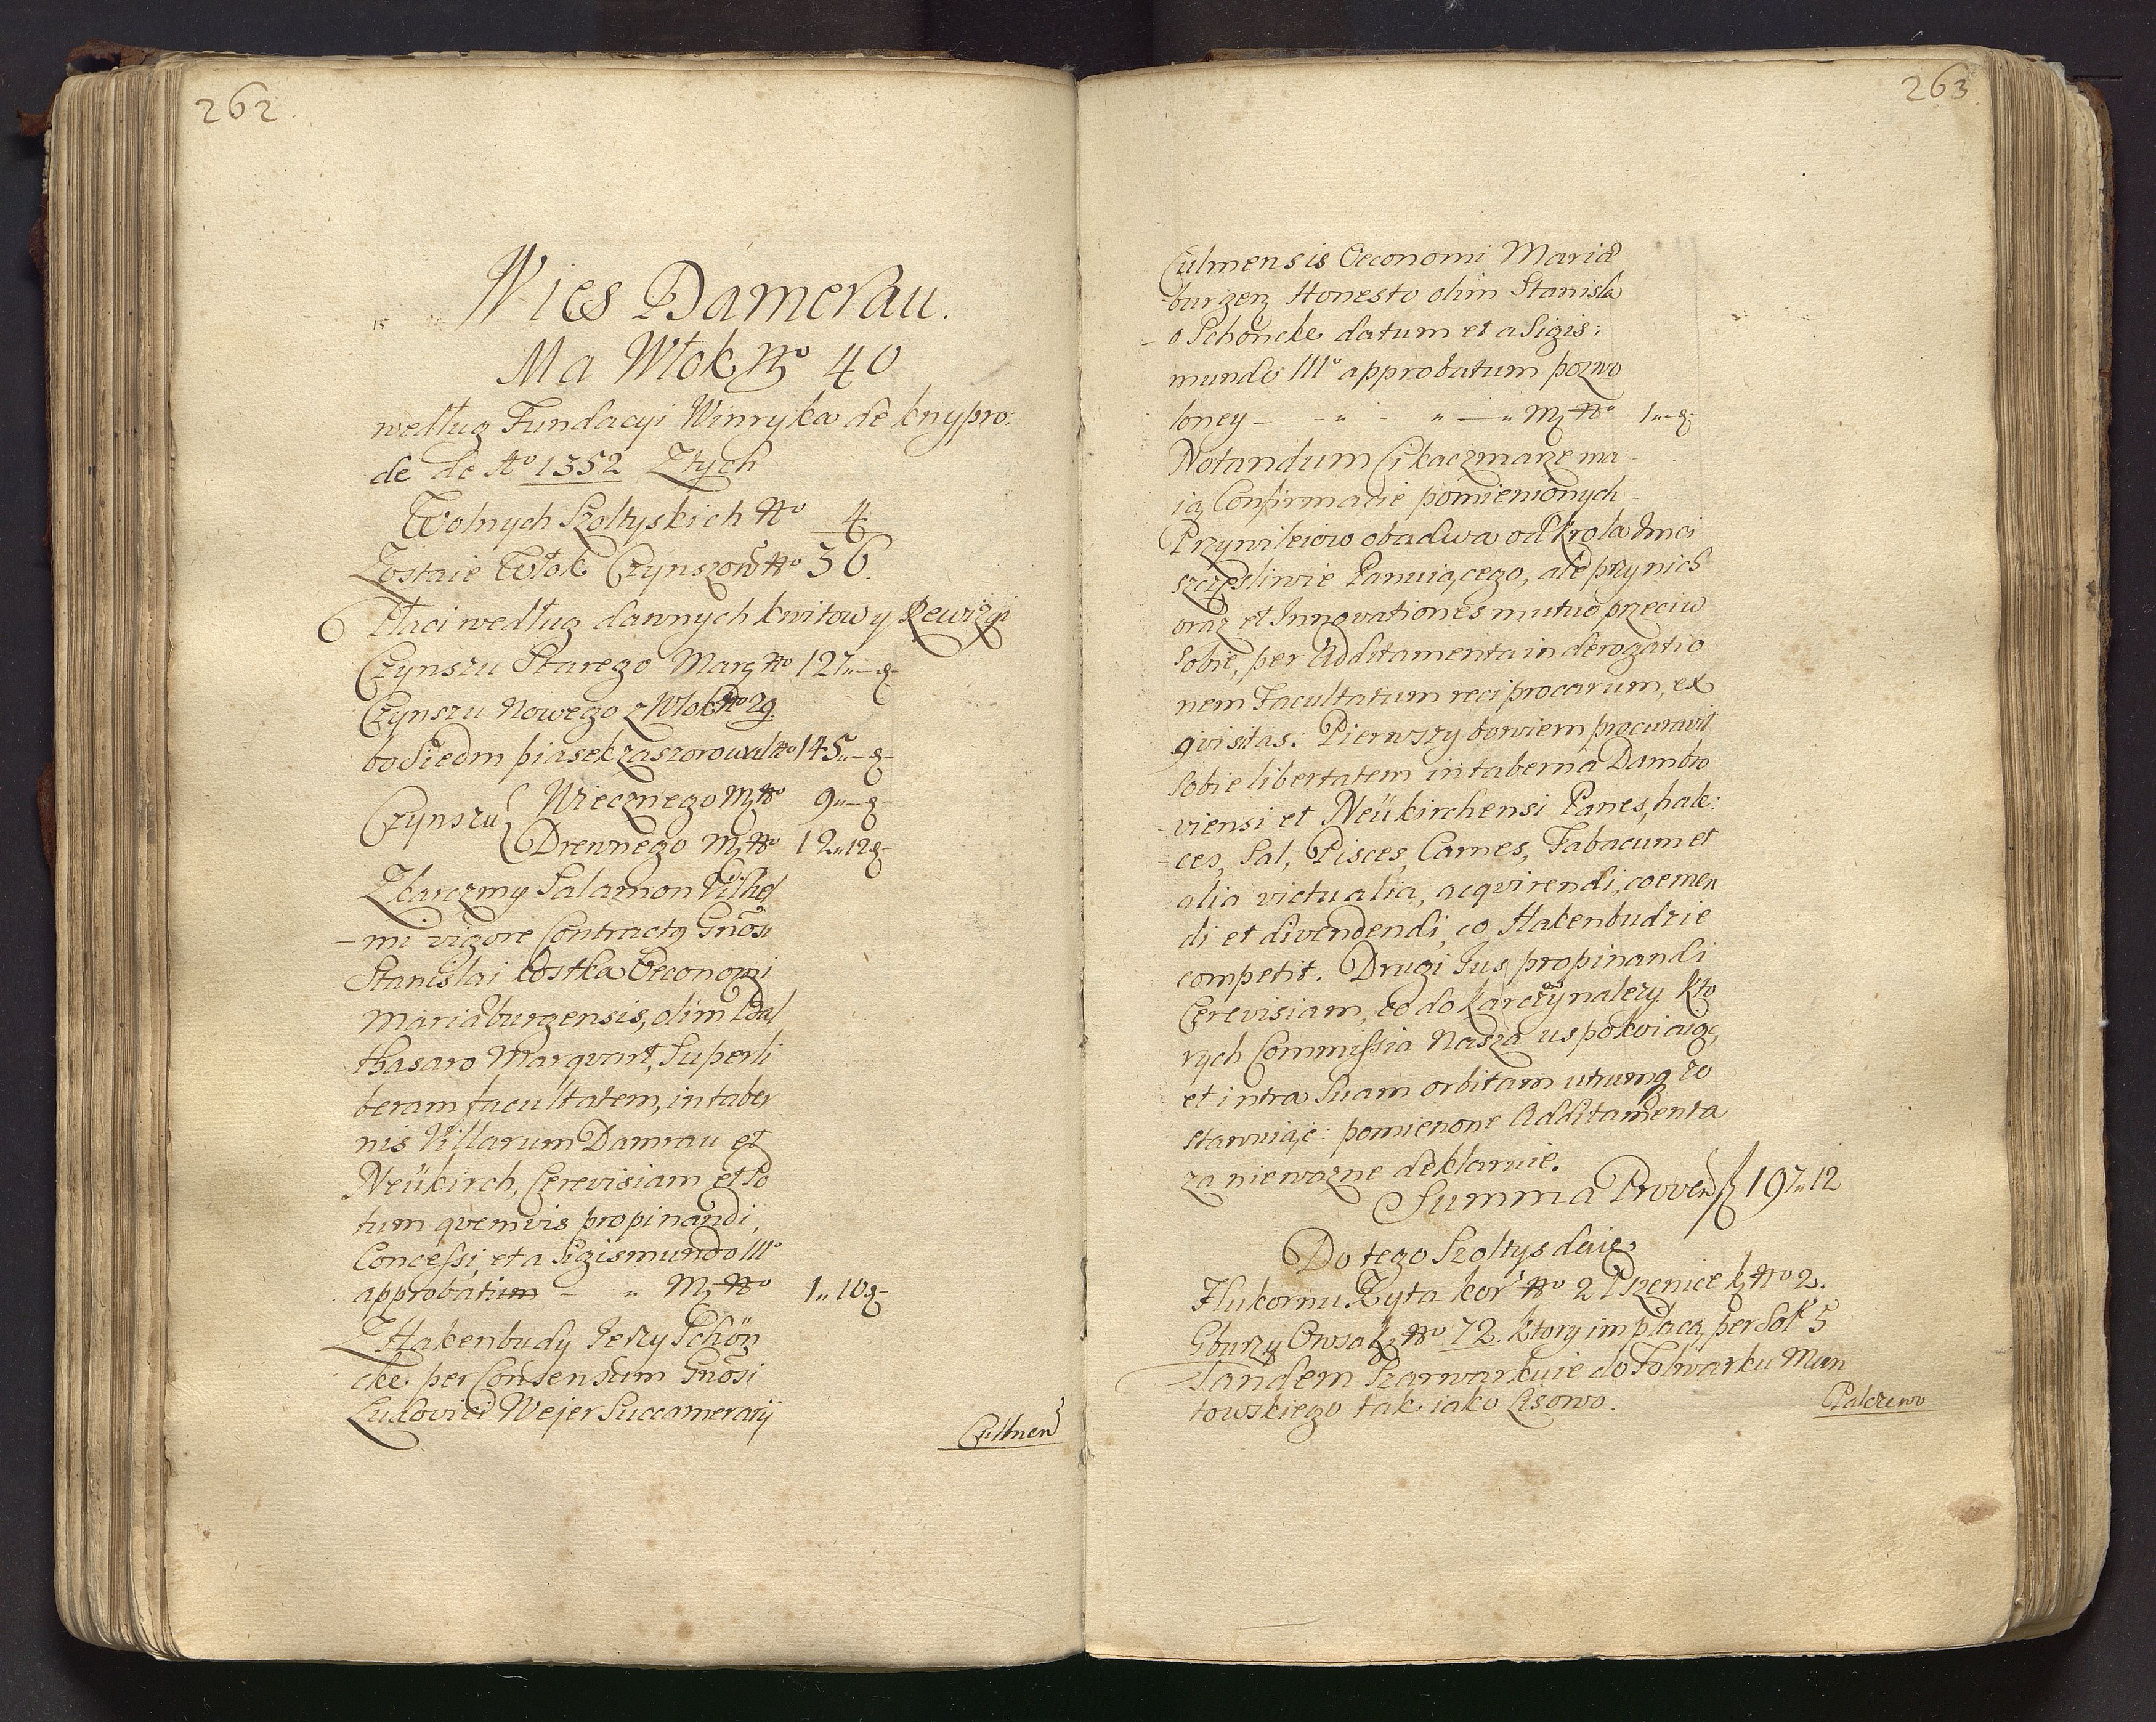 262.
Wies Damerau.
Ma Włok No 40
według Fundacyi Winryka de knypro:
de de Ao 1352 Ztych
Wolnych Szoltyskich No 4
Zostaie Włok Czynszow No 36.
Płaci według dawnych kwitow y Rewizyi
Czynszu Starego Marz No 127„—g
Czynszu Nowego z Włok No 29.
bo Siedm piasek zaszorował No 145„—g
Czynszu { Wiecznego Mz No 9„—g
Drewnego Mz No 12„12g
Z karczmy Salamon Vilhel
-mi vigore Contractg Gnosi
Stanislai kostka Oeconomi
Mariaburgensis, olim Bal
thasaro Marqvart, Superli
beram facultatem, in taber
nis Villarum Damrau et
Neükirch, Cerevisiam et Po
tum qvemvis propinandi,
Concessi, et a Sigismundo IIIo
approbatum - „ Mz No 1„10g
Z Hakenbudy Jerzy Schön
cke per Consensum Gnosi
Ludovici Wejer Succamerarij
Culmen
263.
Culmensis Oeconomi Mariæ
-burgen Honesto olim Stanisla
-o Schöncke datum et a Sigis:
mundo IIIo approbatum pozwo
loney - - „ - „ - „ Mz No 1„—g
Notandum Ci kaczmarze ma
ią Confirmacie pomienionych
Przywileiow obadwa od Krola Jmci
szczęsliwie Panuiącego, ale przy nich
oraz et Innovationes mutuo przeciw
Sobie, per Additamenta in derogatio
nem Facultatum reciprocarum, ex
qvisitas: Pierwszy bowiem procuravit
Sobie libertatem in taberna Dambro
-viensi et Neükirchensi Panes, hale:
-ces, Sal, Pisces, Carnes, Tabacum et
alia victualia, acqvirendi, coemen
di et divendendi, co Hakenbudzie
competit. Drugi Jus propinandi
Cerevisiam, co do karczmy nalezy. Kto
rych Commissia Nasza uspokoiaiąc,
et intra Suam orbitam utrumq zo
stawuiąc: pomienone Additamenta
za niewazne deklaruie.
Summa Proven 197„12
Do tego Szoltys daie
Zlukornu Zyta kor No 2 Pszenice k No 2.
Gburzy Owsa k No 72. ktory im płacą per Sol 5
Tandem Szarwarkuie do Folwarku Mun
towskiego tak iako Lisowo.
Palczewo